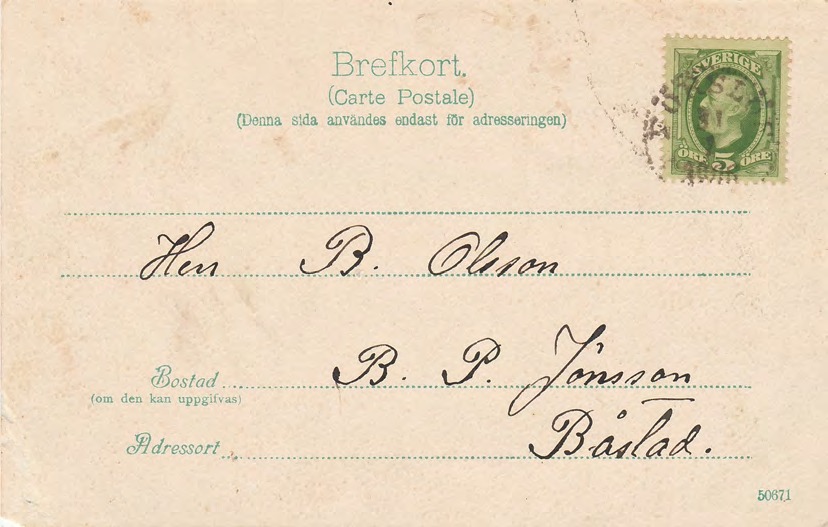 Brefkort.
(Carte Postale)
(Denna sida användes endast för adresseringen)
SVERIGE
ÖRE 5 ÖRE
Herr B. Olsson
Bostad B. P. Jönsson
(om den kan uppgifvas)
Adressort Båstad.
50671